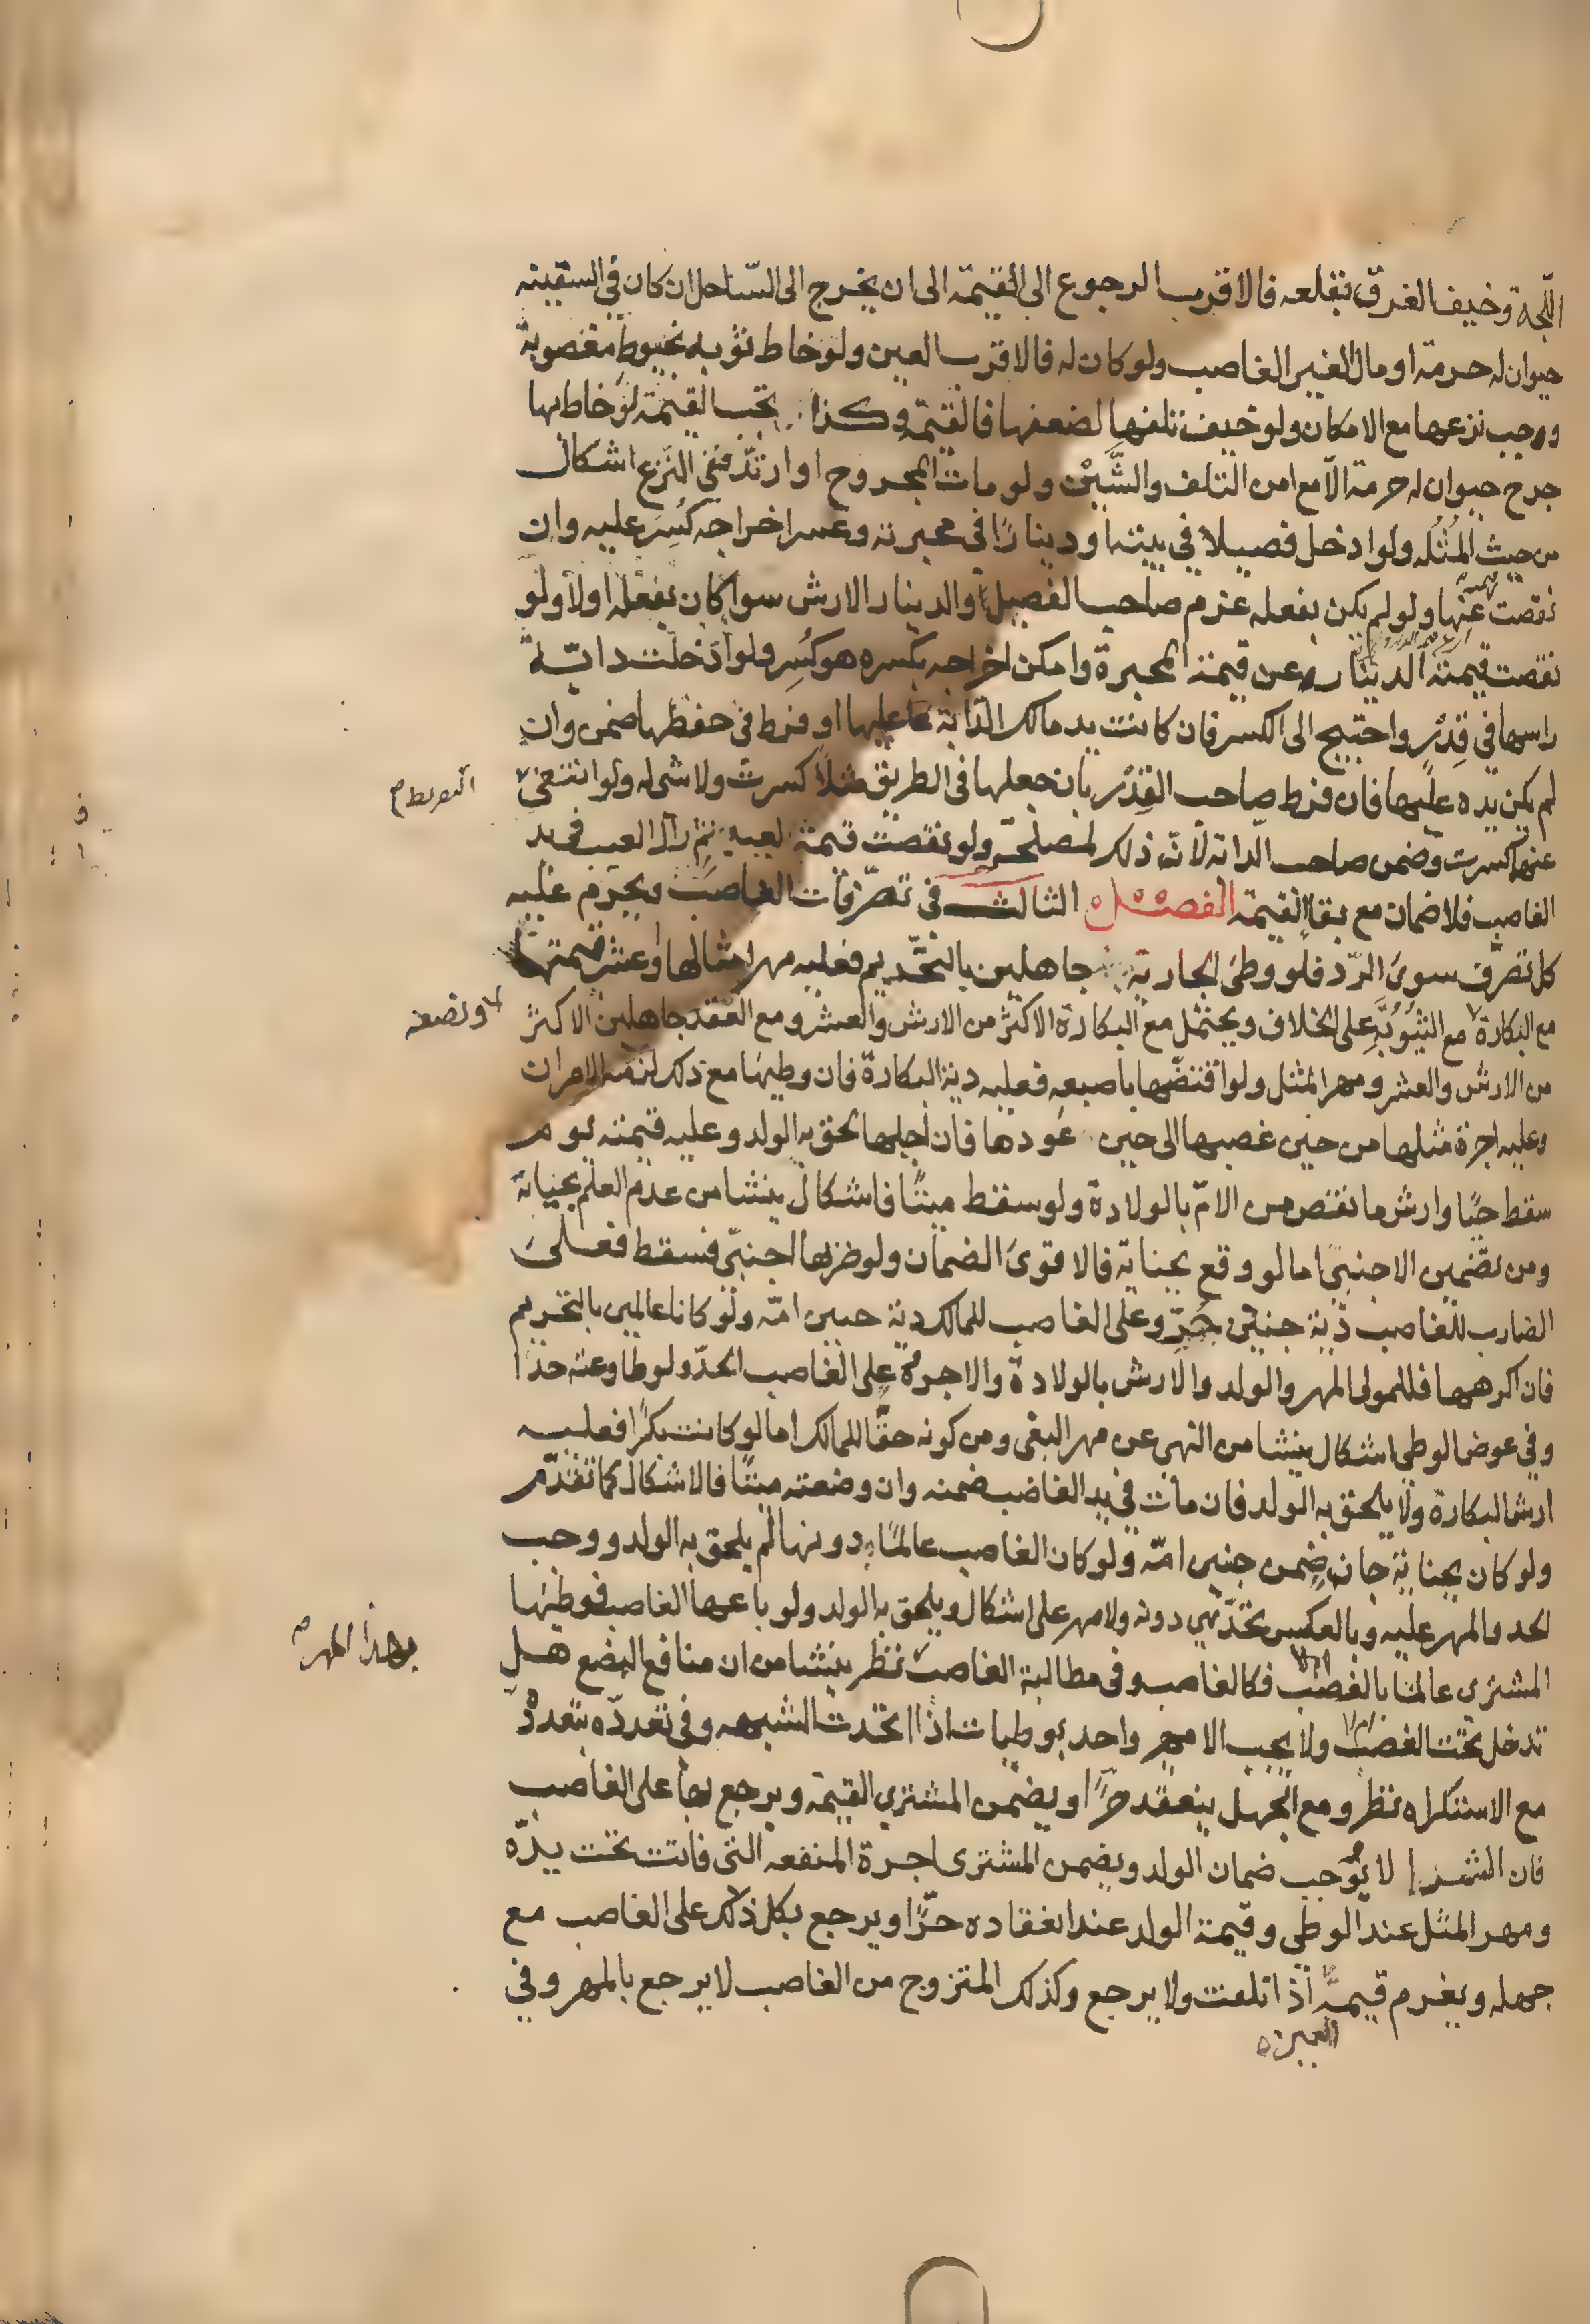 اللجة وخيف الغرق بقلعه فالاقرب الرجوع الى القيمة الى ان يخرج الى الساحل ان كان في السفينه
حيوان له حرمة او مال لغير الغاصب ولو كان له فالاقرب العين ولو خاط ثوبه بخيوط مغصوبة
ووجب نزعها مع الامكان ولو خيف تلفها لضعفها فالقيمة وكذا تجب القيمة لو خاط بها
جرح حيوان له حرمة الا مع امن التلف والشين ولو مات المجروح او ارتد ففي النزع اشكال
من حيث المثله ولو ادخل فصيلا في بيته او دينارا في محبرته وعسر اخراجه كسر عليه وان
نقصت قيمته عنها ولو لم يكن بفعله غرم صاحب الفصيل والدينار الارش سواء كان بفعله اولا ولو
نقصت قيمة الدينار عن قيمة المحبرة وامكن اخراجه بكسره هو كسر ولو ادخلت دابة
راسها في قدر واحتيج الى الكسر فان كانت يد مالك الدابة عليها او فرط في حفظها ضمن وان
لم يكن يده عليها فان فرط صاحب القدر بان جعلها في الطريق مثلا كسرت ولا شي له ولو انتفى
التفريط
عنهما كسرت وضمن صاحب الدابة لان ذلك لمصلحته ولو نقصت قيمة لعيب ثم زال العيب في يد
الغاصب فلا ضمان مع بقا القيمة الفصل الثالث في تصرفات الغاصب ويحرم عليه
كل تصرف سوى الرد فلو وطى الجارية جاهلين بالتحريم فعليه مهر امثالها او عشر قيمتها
مع البكارة مع الثيوبة على الخلاف ويحتمل مع البكارة الاكثر من الارش والعشر ومع العقد جاهلين الاكثر
ونصفه
من الارش والعشر ومهر المثل ولو افتضها باصبعه فعليه دية البكارة فان وطيها مع ذلك لزمه الامران
وعليه اجرة مثلها من حين غصبها الى حين عودها فان احبلها لحق به الولد وعليه قيمته يوم
سقط حيا وارش ما نقص من الام بالولادة ولو سقط ميتا فاشكال ينشا من عدم العلم بحياته
ومن تضمين الاجنبي اما لو وقع بجناية فالاقوى الضمان ولو ضربها اجنبي فسقط فعلى
الضارب للغاصب دية جنين حر وعلى الغاصب للمالك دية جنين امة ولو كانا عالمين بالتحريم
فان اكرهها فللمولى المهر والولد والارش بالولادة والاجرة على الغاصب الحد ولو طاوعته حدا
وفي عوض الوطي اشكال ينشا من النهي عن مهر البغي ومن كونه حقا للمالك اما لو كانت بكرا فعليه
ارش البكارة ولا يلحق به الولد فان مات في يد الغاصب ضمنه وان وضعته ميتا فالاشكال كما تقدم
ولو كان بجناية جان ضمن جنين امة ولو كان الغاصب عالما دونها لم يلحق به الولد ووجب
الحد والمهر عليه وبالعكس تحد هي دونه ولا مهر على اشكال ويلحق به الولد ولو باعها الغاصب فوطيها
المشتري عالما بالغصب فكالغاصب وفي مطالبة الغاصب نظر ينشا من ان منافع البضع هل
بهذا المهر
تدخل تحت الغصب اولا ولا يجب الا مهر واحد بوطيات اذا اتحدت الشبهه وفي تعدده بتعدد
مع الاستكراه نظر ومع الجهل ينعقد حرا ويضمن المشتري القيمة ويرجع بها على الغاصب
فان الشرا لا يوجب ضمان الولد ويضمن المشتري اجرة المنفعه التي فاتت تحت يده
ومهر المثل عند الوطي وقيمة الولد عند انعقاده حرا ويرجع بكل ذلك على الغاصب مع
جهله ويغرم قيمة اذا تلفت ولا يرجع وكذلك المتزوج من الغاصب لا يرجع بالمهر وفي
العين